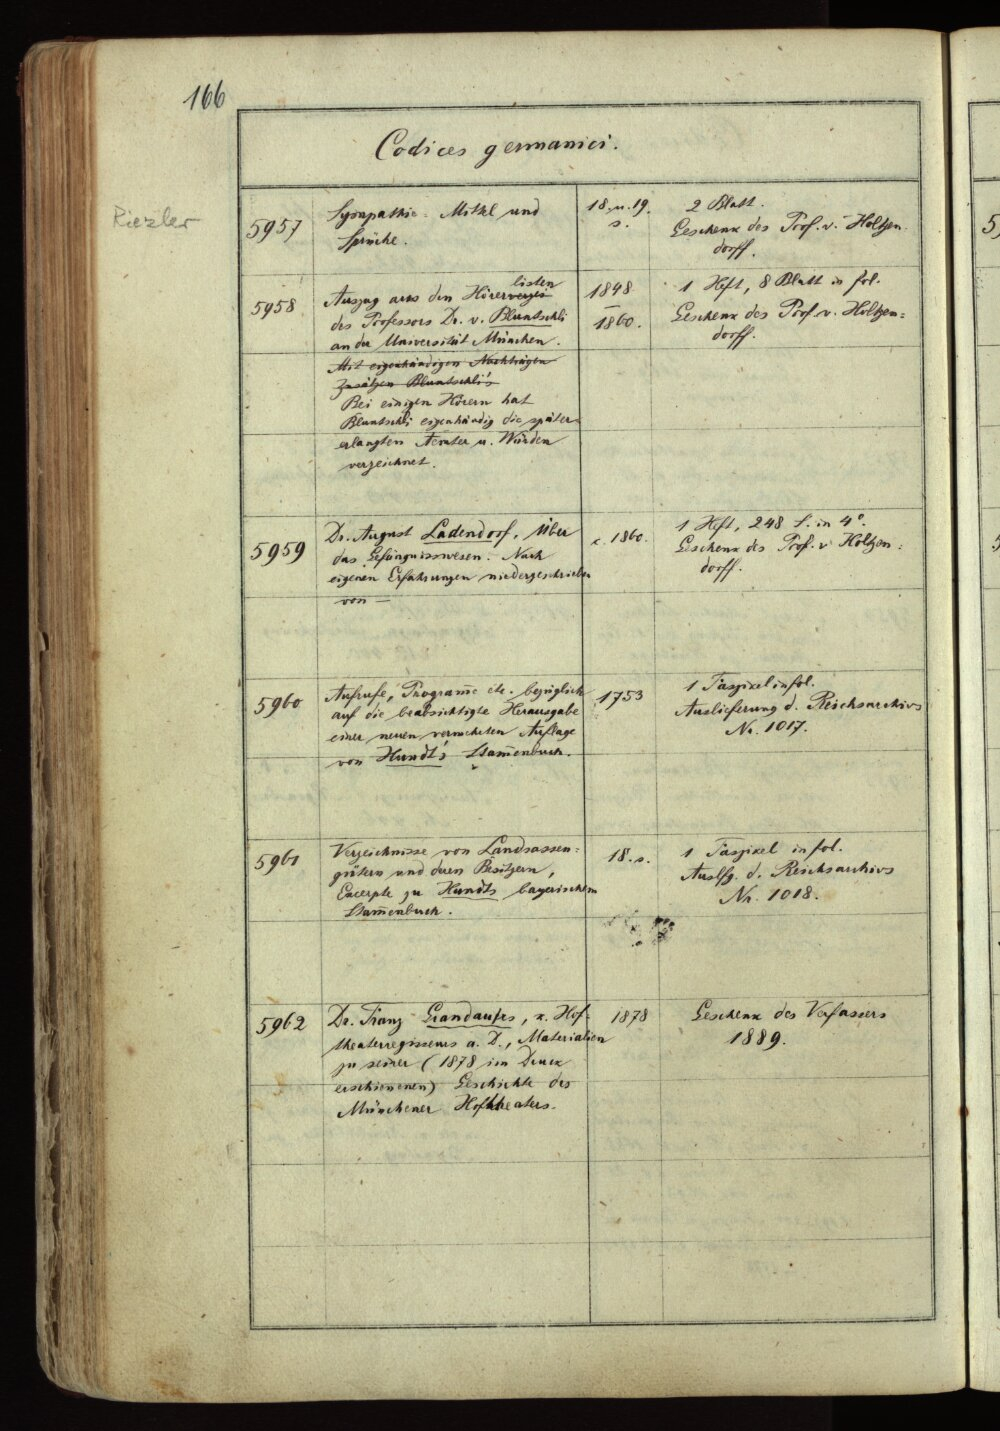 166
Codices germanici.
Riezler
5957
Sympathie-Mittel und
Sprüche.
18. u. 19.
s.
2 Blatt.
Geschenk des Prof. v. Holtzen-
dorff.
5958
listen
Auszug aus den Hörerverzeis
des Professors Dr. v. Bluntschli
an der Universität München.
Mit eigenhändigen Nachträgen
Zusätzen Bluntschli's
Bei einigen Hörern hat
Bluntschli eigenhändig die später
erlangten Aemter u. Würden
verzeichnet.
1848
–
1860.
1 Heft, 8 Blatt in fol.
Geschenk des Prof. v. Holtzen=
dorff.
5959
Dr. August Ladendorf, Über
das Gefängnisswesen. Nach
eigenen Erfahrungen niedergeschrieben
von —
c. 1860.
1 Heft, 248 S. in 4°.
Geschenk des Prof. v. Holtzen=
dorff.
5960
Aufrufe, Programe etc. bezüglich
auf die beabsichtigte Herausgabe
einer neuen vermehrten Auflage
von Hundt's Stamenbuch.
1753
1 Faszikel in fol.
Auslieferung d. Reichsarchivs
Nr. 1017.
5961
Verzeichnisse von Landsassen=
gütern und deren Besitzern,
Excerpte zu Hundts bayerischem
Stamenbuch.
18. s.
1 Faszikel in fol.
Auslfg. d. Reichsarchivs
Nr. 1018.
5962
Dr. Franz Grandaurs, k. Hof-
theaterregisseurs a. D., Materialien
zu seiner (1878 im Druck
erschienenen) Geschichte des
Münchener Hoftheaters.
1878
Geschenk des Verfassers
1889.